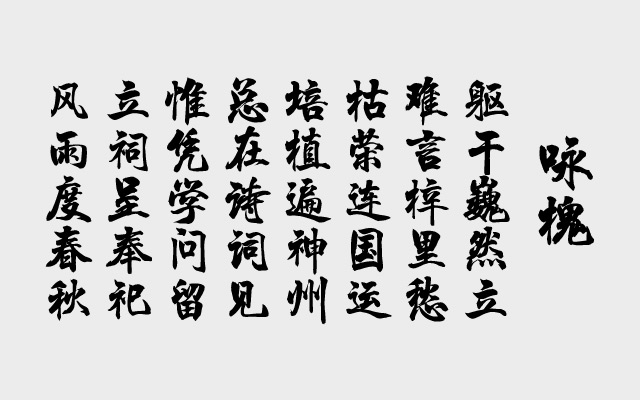 咏槐
躯干巍然立
难言梓里愁
枯荣连国运
培植遍神州
总在诗词见
惟凭学问留
立祠呈奉祀
风雨度春秋